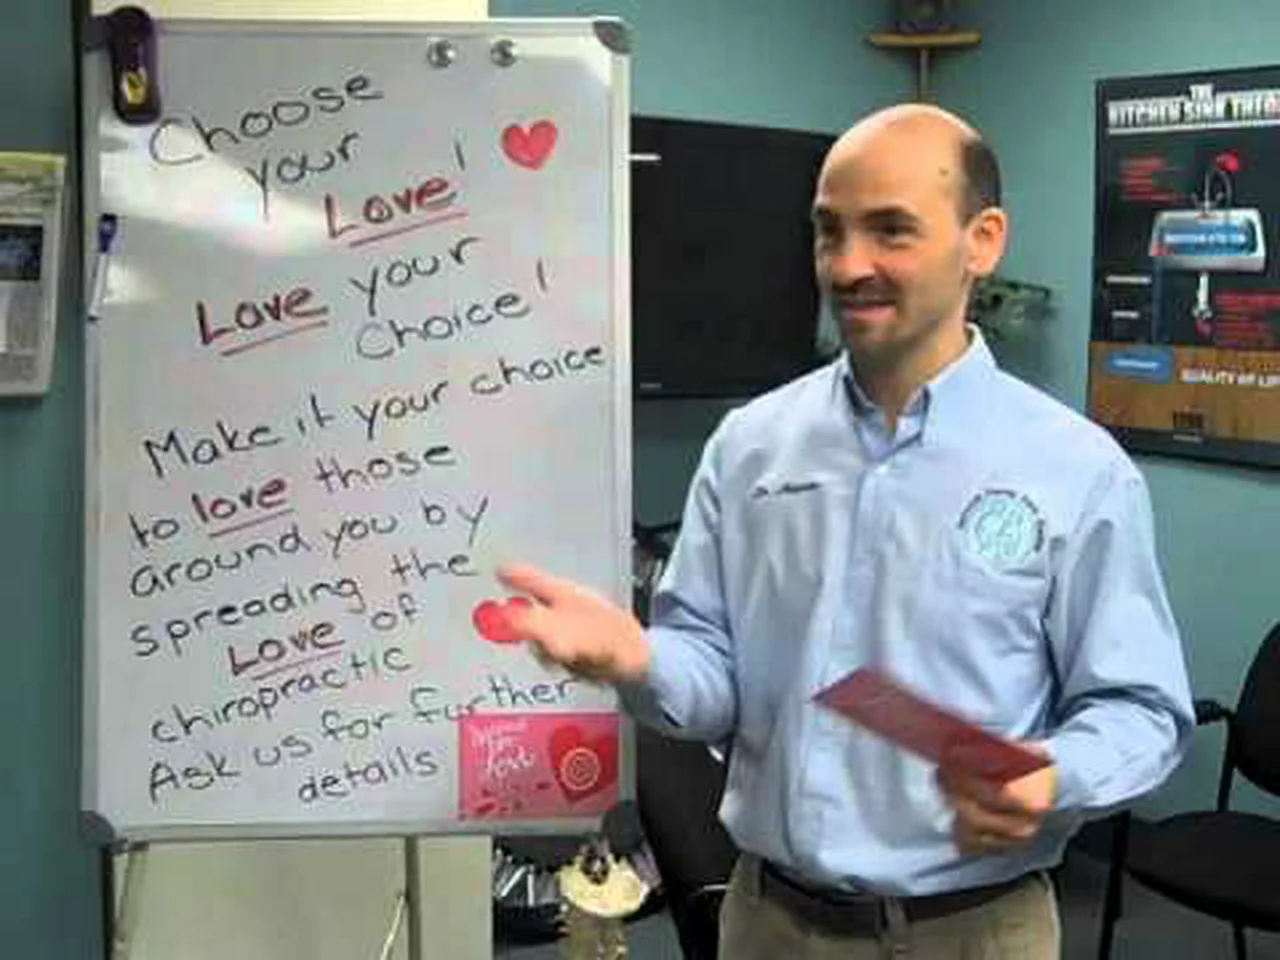 Choose
your
Love!
Love your
Choice!
Make it your choice
to love those
around you by
spreading the
Love of
chiropractic
Ask us for further
details
THE
KITCHEN SINK THEO
QUALITY OF LIF
Dr.